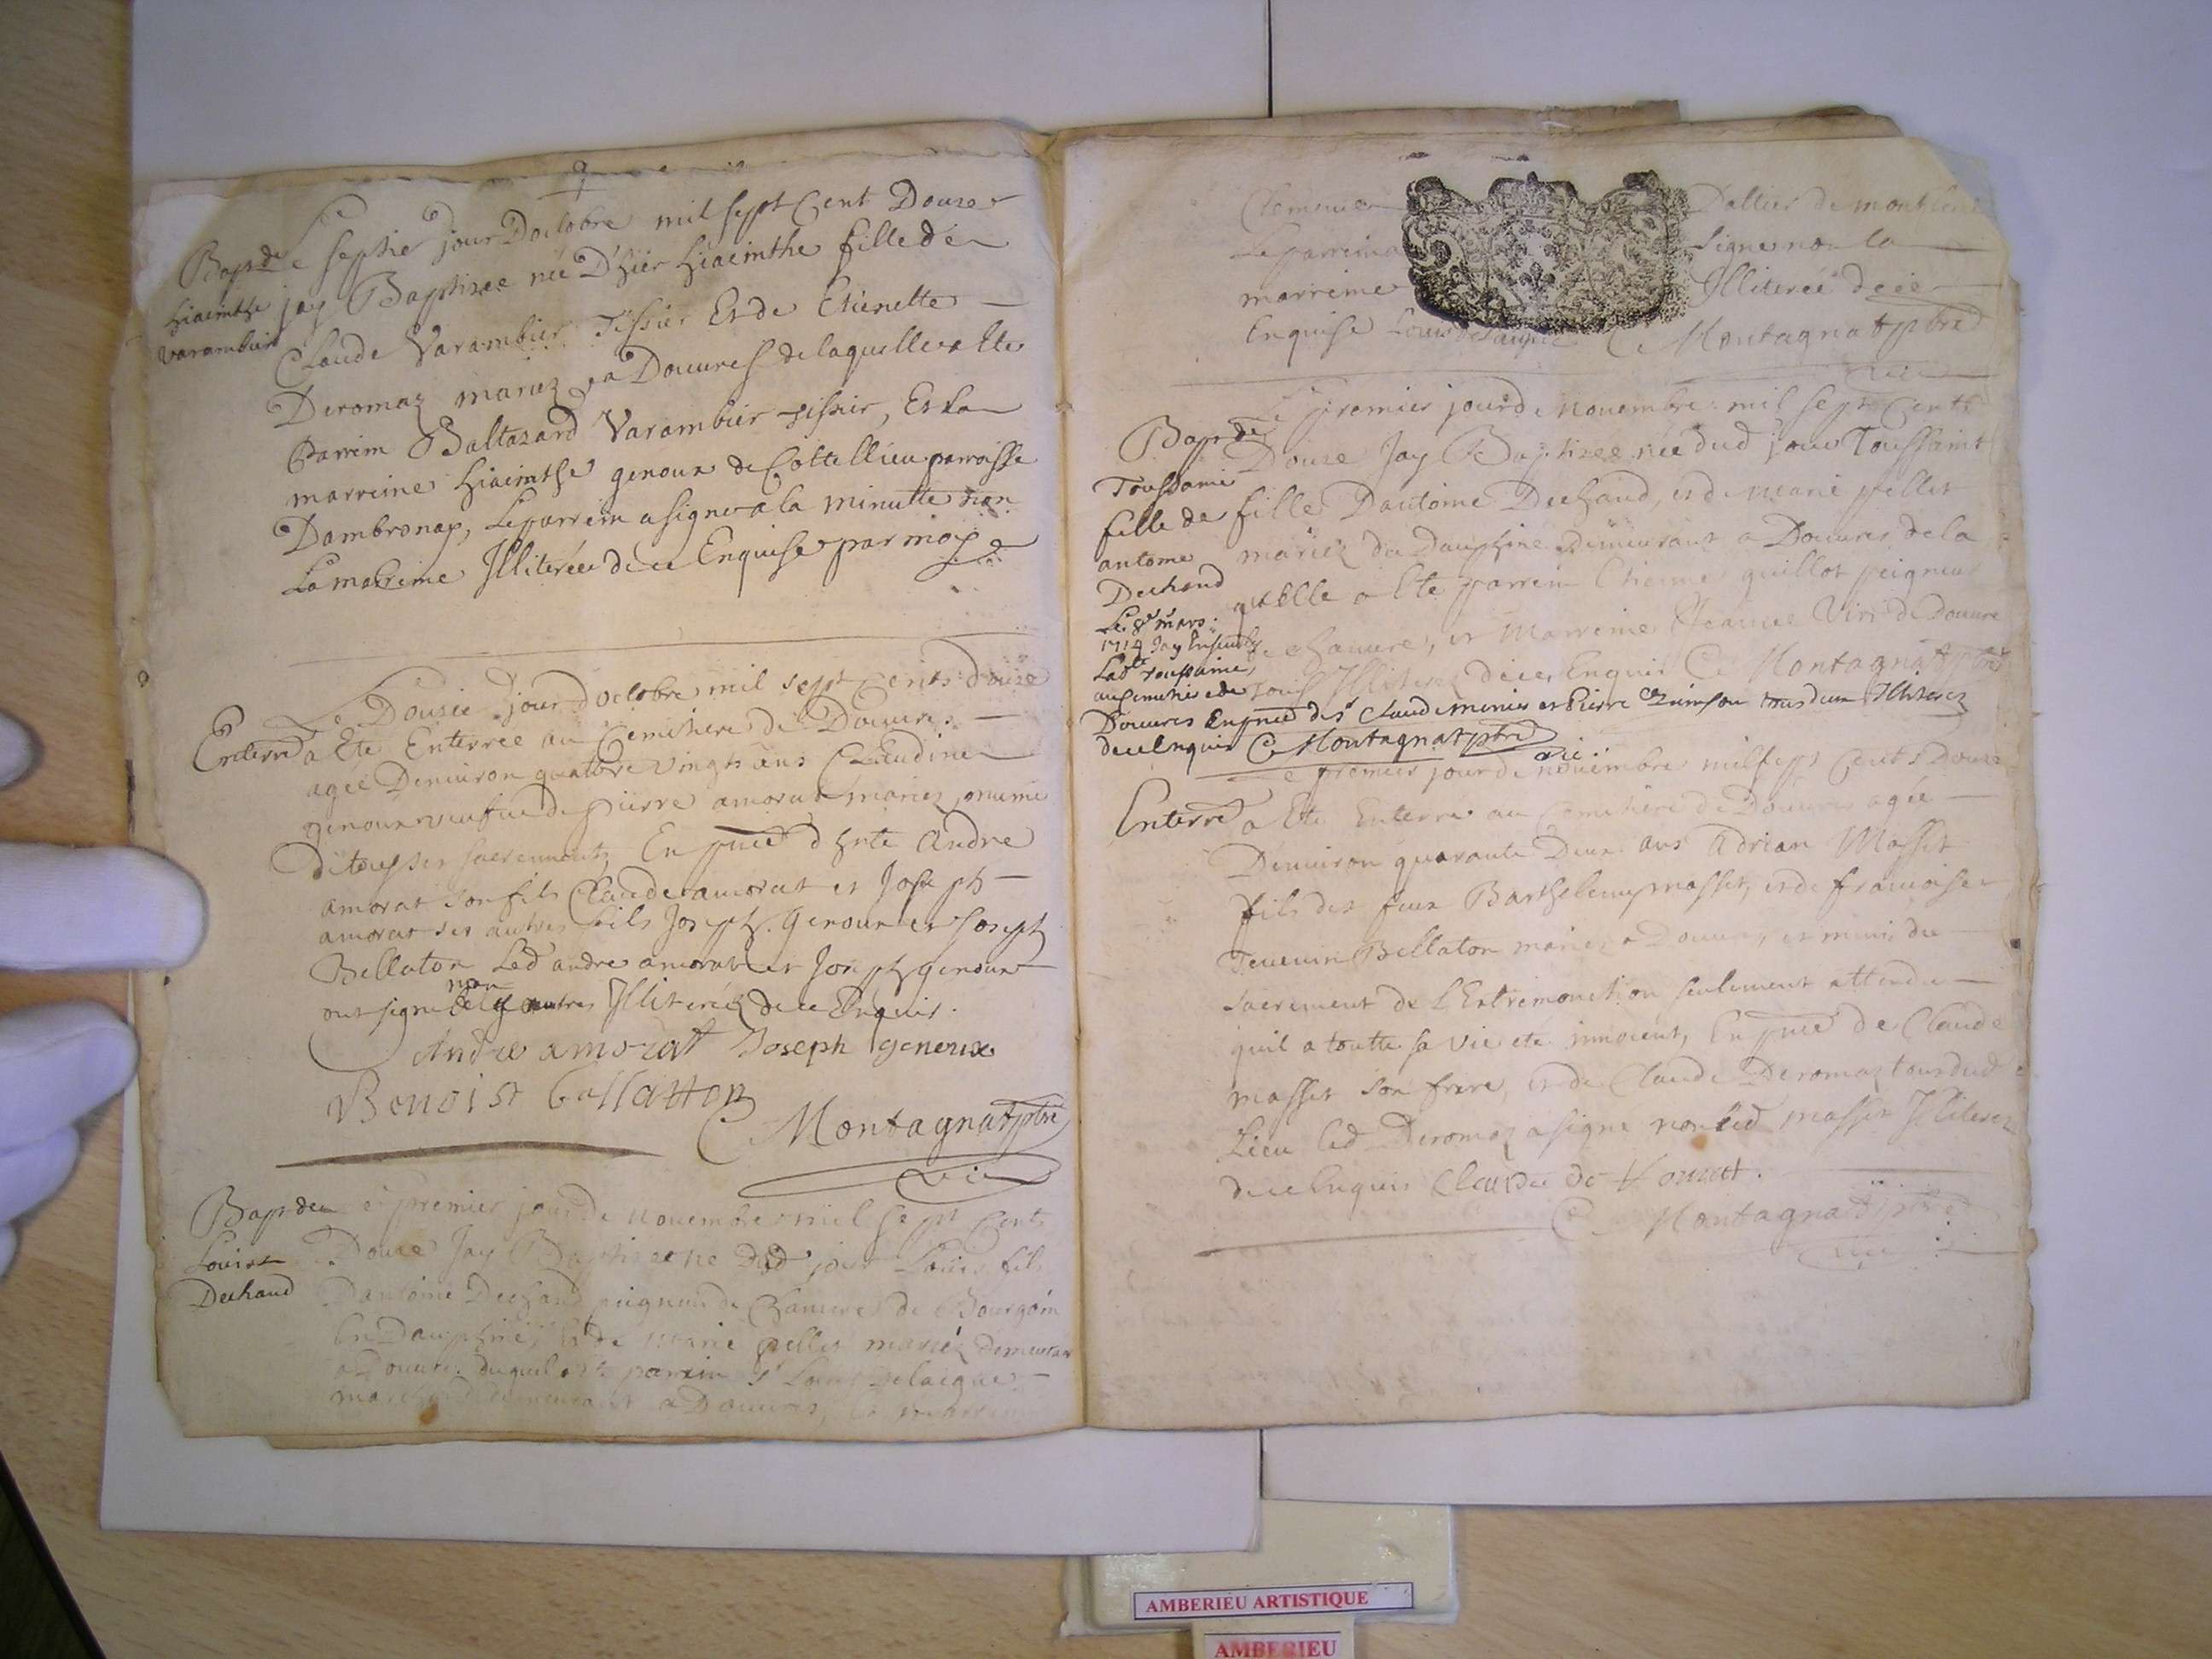 Bap.de Le septie jour Doctobre mil sept Cent Douze
hiacinthe jay Baptizee née D'hier hiacinthe fille de
varambier Claude Varambier Tissier Et de Etienette
Deromaz mariez a Douures de laquelle a Ete
Parrein Baltazard Varambier tissier, Et la
marreine hiacinthe genoux de Cottellieu parroisse
Dambronay, Le parrein a signe a la minutte non
La marreine Illiterée de ce Enquise par moy
Le Douzie jour doctobre mil sept Cents douze
Enterré a Ete Enterree au Cemithere de Douures
agée Denuiron quatre vingts ans Claudine
genoux veufue de pierre amorat munie
de tous ses sacrements En pnce d'hnte Andre
amorat son fils Claude amorat et Joseph
amorat ses autres fils Joseph Genoux et Joseph
Bellaton Led andre amorat et Joseph genoux
ont signe non les autres Illiteréz de ce Enquis.
Andre amorat Joseph geneux
Benoist bellatton
C Montagnat ptre
vic
Bap. de Le premier jour de nouembre mil sept Cents
Louis Douze Jay Baptize ne dud jour Louis fils
Dechaud Dantoine Dechaud peigneur de Chanure de Bourgoin
En Dauphiné, Et de Marie pellet mariéz demeurant
a Douures duquel a ete parrein Sr Louis Delaigue
marchand demeurant a Douures, et marreine
Clemence Dallier de
Le parrein a Signe non la
marreine Illiterée de ce
Enquise Louis Delaigue C Montagnat ptre
Le premier jour de Nouembre mil sept Cents
Bap. de Douze Jay Baptizée née dud jour Toussaint
Toussaine
fille de fille Dantoine Dechaud, et de Marie pellet
antoine mariéz du Dauphiné Demeurant a Douures de la
Dechaud quelle a Ete parrein Etienne guillot peigneur
Le 8e mars
1714 Jay Enseuely de chanure, et Marreine Jeanne Viri de Douure
Lad.te toussaine,
au Cemithiere de tous Illiterez de ce Enquis C Montagnat ptre
Douures En pnce de Claude et Pierre tous deux Illiterez
de ce Enquis C Montagnat ptre
vic
Le premier jour de nouembre mil sept Cents Douze
Enterré a Ete Enterré au Cemithiere de Douures agée
Denuiron quarante Deux ans Adrian Masset
fils de feux Barthelemy masset, et de francoise
Teuenin Bellaton mariez a Douures, et muni du
sacrement de L'Extremonction seulement attendu
quil a toutte sa vie ete innocent, En pnce de Claude
masset son frere, et de Claude Deromaz tous dud
Lieu led Deromaz a signe non led masset Illiterez
de ce Enquis Claude
C Montagnat ptre
vic
AMBERIEU ARTISTIQUE
AMBERIEU